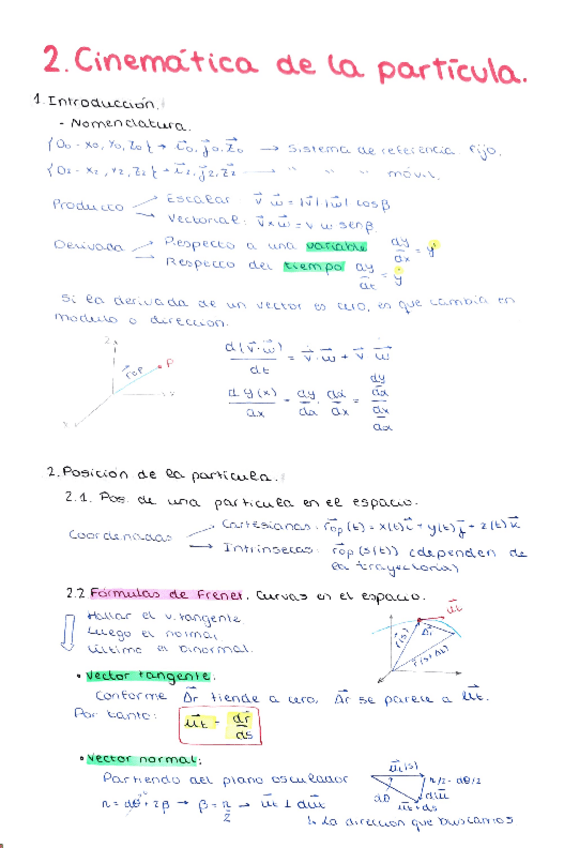 2. Cinemática de la partícula.
1. Introducción.
- Nomenclatura.
{O₀ - x₀, y₀, z₀} → i₀, j₀, z₀ → sistema de referencia fijo.
{O₂ - x₂, y₂, z₂} → i₂, j₂, z₂ → " " " móvil.
Producto → Escalar v⃗ w⃗ = |v⃗| |w⃗| cos β
→ Vectorial: v⃗ x w⃗ = v w sen β.
Derivada → Respecto a una variable dy/dx = y'
→ Respecto del tiempo dy/dt = ẏ
Si la derivada de un vector es cero, en que cambia en
modulo o direccion.
z
r⃗op P
y
x
d(v⃗·w⃗)/dt = v̇⃗·w⃗ + v⃗ ẇ⃗
d y(x)/dx = dy/dα · dα/dx = (dy/dα)/(dx/dα)
2. Posición de la partícula.
2.1. Pos. de una particula en el espacio.
Coordenadas → Cartesianas: r⃗op(t) = x(t)i⃗ + y(t)j⃗ + z(t)k⃗
→ Intrínsecas: r⃗op(s(t)) (dependen de
la trayectoria)
2.2 Fórmulas de Frenet. Curvas en el espacio.
Hallar el v. tangente.
Luego el normal
Último el binormal.
u⃗t
r⃗(s) Δr⃗
r⃗(s+Δs)
• Vector tangente:
Conforme Δr⃗ tiende a cero, Δr⃗ se parece a u⃗t.
Por tanto: u⃗t = dr⃗/ds
• Vector normal:
Partiendo del plano osculador
π = dθ + 2β → β = π/2 → u⃗t ⊥ du⃗t
↳ La direccion que buscamos
u⃗t(s)
π/2 - dθ/2
dθ du⃗
u⃗t+ds